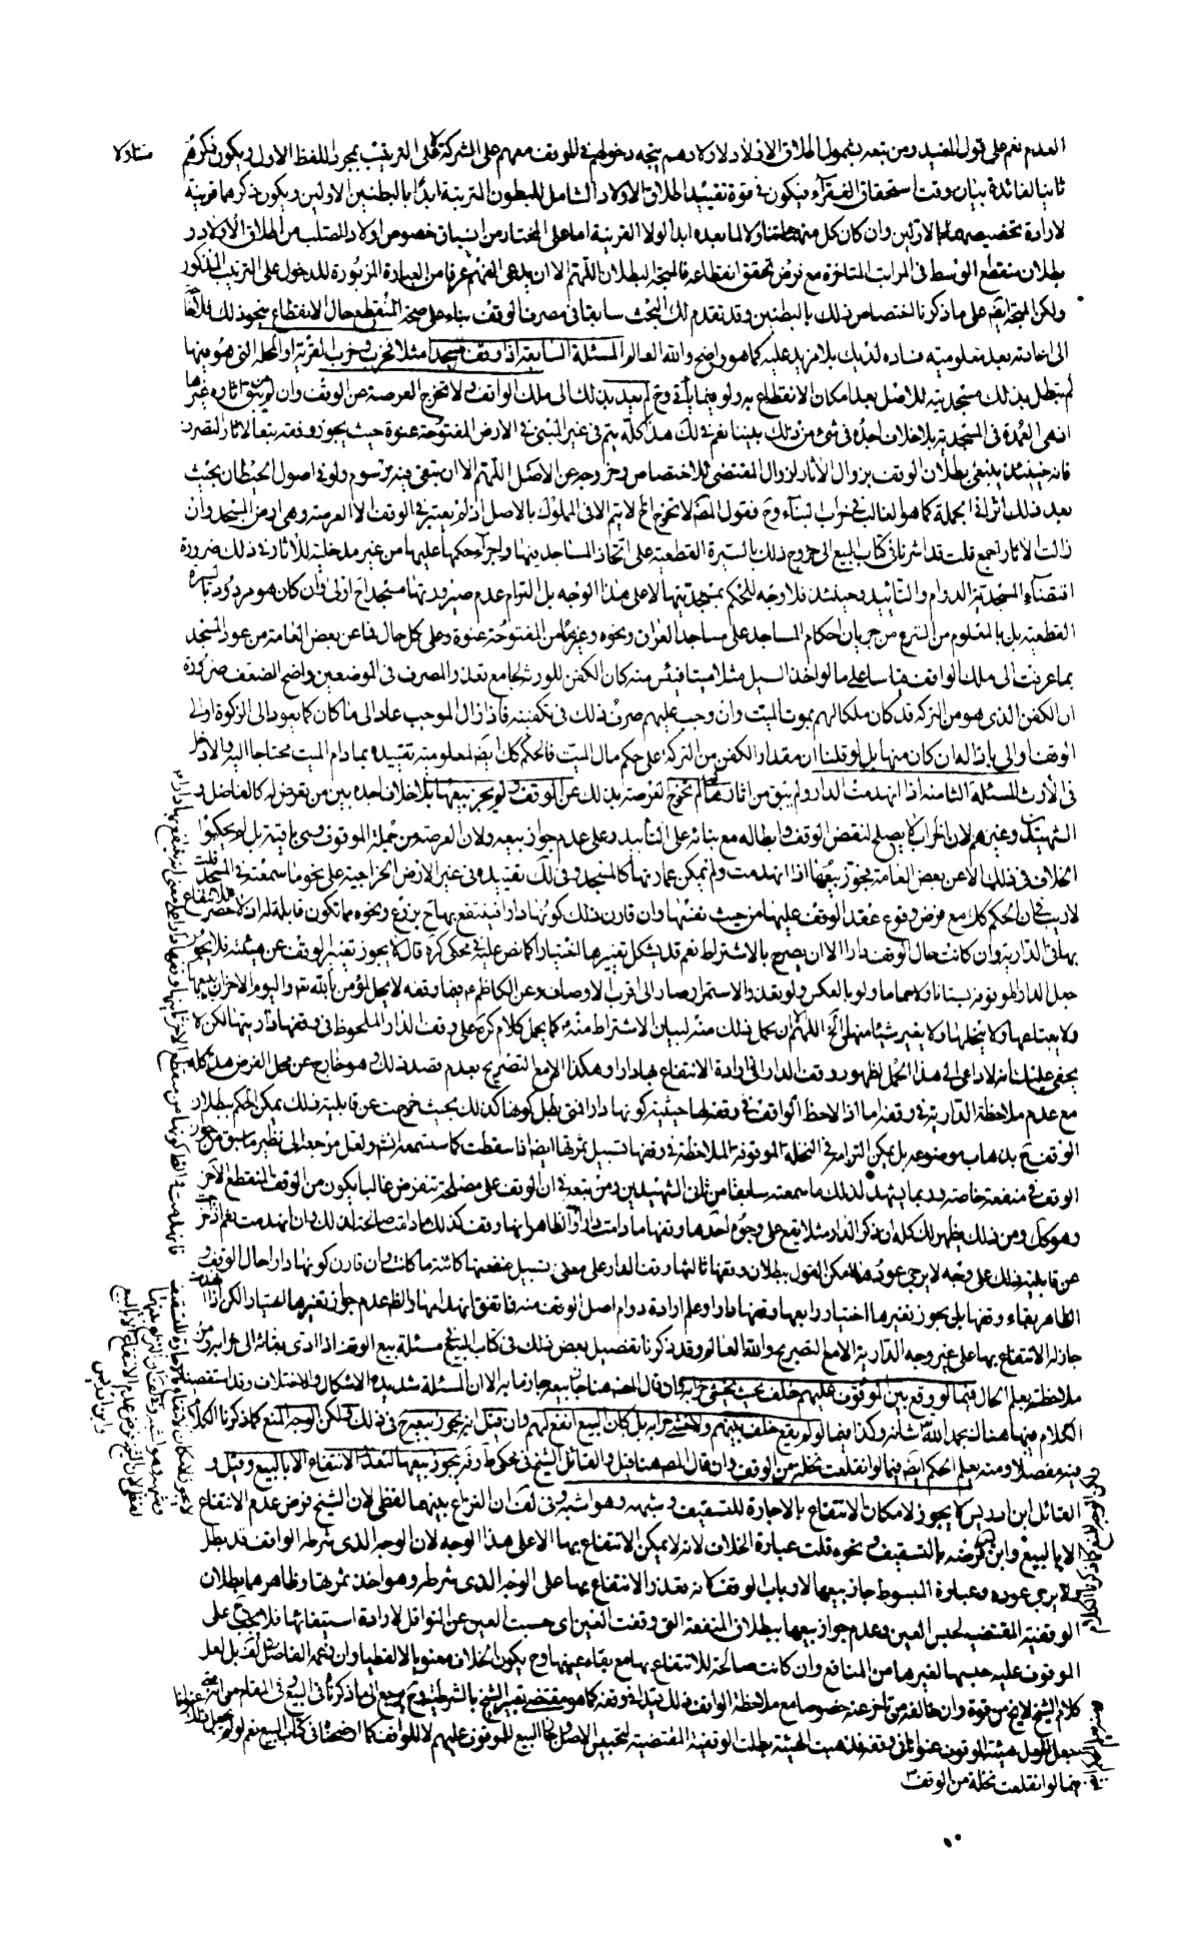 العدم نعم على قول المفيد ومن تبعه بشمول اطلاق الاولاد لاولادهم يتجه دخولهم في الوقف معهم على الشركة لا على الترتيب بمجرد اللفظ الاول ويكون ذكرهم
ثانيا لفائدة بيان وقت استحقاق الفقراء فيكون في قوة تقييد اطلاق الاولاد الشامل للبطون المترتبة ابدا بالبطنين الاولين ويكون ذكرهما قرينة
لارادة تخصيصهما بالاولين وان كان كل منهما متناولا لما بعده ابدا لولا القرينة اما على المختار من انسياق خصوص اولاد الصلب من اطلاق الاولاد و
بطلان منقطع الوسط في المراتب المتاخرة مع فرض تحقق انقطاعه فالمتجه البطلان اللهم الا ان يدعى الفهم عرفا من العبارة المزبورة للدخول على الترتيب المذكور
ولكن المتجه ايضا على ما ذكرنا اختصاص ذلك بالبطنين وقد تقدم لك البحث سابقا في مصرف الوقف بناء على صحة المنقطع حال الانقطاع بنحو ذلك فلا
الى اعادته بعد معلوميته فساده لديك بلا مزيد عليه كما هو واضح والله العالم المسئلة السابعة اذا وقف مسجدا مثلا فخرب او خربت القرية او المحلة التي هو فيها
لم تبطل بذلك مسجديته للاصل بعد امكان الانتفاع به ولو فيما ياتي وح لم يعد بذلك الى ملك الواقف ولا تخرج العرصة عن الوقف وان لم يبق من اثاره غيرها
اذ هي العمدة في المسجدية بلا خلاف اجده في شيء من ذلك بيننا نعم في لك هذا كله يتم في غير المبنى في الارض المفتوحة عنوة حيث يجوز وقفه تبعا لاثار التصرف
فانه حينئذ ينبغي بطلان الوقف بزوال الاثار لزوال المقتضى للاختصاص وخروجه عن الاصل اللهم الا ان تبقى فيه رسوم ولو في اصول الحيطان بحيث
يعد ذلك اثرا في الجملة كما هو الغالب في خراب البناء وح فقول المصنف لا تخرج الخ لا يتم الا في المملوك بالاصل اذ لم يعتبر في الوقف الا العرصة وهي ارض المسجد وان
زالت الاثار اجمع قلت قد اشرنا في كتاب البيع الى خروج ذلك بالسيرة القطعية على اتخاذ المساجد فيها واجراء حكمها عليها من غير مدخلية للاثار في ذلك ضرورة
اقتضاء المسجدية الدوام والتأبيد وحينئذ فلا وجه للحكم بمسجديتها الا على هذا الوجه بل التزام عدم صيرورتها مسجدا ح اولى وان كان هو مردود بالسيرة
القطعية بل بالمعلوم من الشرع من جريان احكام المساجد على مساجد العراق ونحوه وغيره من المفتوحة عنوة وعلى كل حال فما عن بعض العامة من عود المسجد
بما عرفت الى ملك الواقف قياسا على ما لو اخذ السيل مثلا ميتا فيئس منه كان الكفن للورثة بجامع تعذر المصرف في الموضعين واضح الضعف ضرورة
ان الكفن الذي هو من التركة قد كان ملكا لهم بموت الميت وان وجب عليهم صرف ذلك في تكفينه فاذا زال الموجب عاد الى ما كان كما يعود الى الزكوة او الى
الوقف او الى باذله ان كان منها بل لو قلنا ان مقدار الكفن من التركة على حكم مال الميت فالحكم كك ايضا لمعلومية تقييده بما دام الميت محتاجا اليه والا دخل
في الارث المسئلة الثامنة اذا انهدمت الدار ولم يبق من اثارها لم تخرج العرصة بذلك عن الوقف ولم يجز بيعها بلا خلاف اجده بين من تعرض له كالفاضل و
الشهيدين وغيرهم لان الخراب لا يصلح لنقض الوقف وابطاله مع بنائه على التأبيد وعلى عدم جواز بيعه ولان العرصة من جملة الموقوف وهي باقية بل لم يحكوا
الخلاف في ذلك الا عن بعض العامة فجوز بيعها اذا انهدمت ولم تمكن عمارتها كالمسجد وفي لك تقييده في غير الارض الخراجية على نحو ما سمعته في المسجد قلت
لا ريب في ان الحكم كك مع فرض وقوع عقد الوقف عليها من حيث نفسها وان قارن ذلك كونها دارا فينتفع بها ح بزرع ونحوه مما تكون قابلة له اذ لا حصر للانتفاع
بها في الدارية وان كانت حال الوقف دارا الا ان يصرح بالاشتراط نعم قد يشكل تغييرها اختيارا كما نص عليه في محكي كره قال لا يجوز تغيير الوقف عن هيئته فلا يجوز
جعل الدار الموقوفة بستانا ولا حماما ولو بالعكس ولو تعذر الاستمرار صار الى اقرب الاوصاف وعن الكاظم ع فيما وقفه لا يحل لمؤمن بالله ته واليوم الاخر ان يبيعها
ولا يبتاعها ولا ينحلها ولا يغير شيئا منها الخ اللهم ان يحمل ذلك منه لبيان الاشتراط منه كما يحمل كلام كره على وقف الدار الملحوظ في وقفها داريتها لكن لا
يخفى عليك انه لا داعي الى هذا الحمل لظهور وقف الدار في ارادة الانتفاع بها دارا وهكذا الا مع التصريح بعدم قصد ذلك وهو خارج عن محل الفرض هذا كله
مع عدم ملاحظة الدارية في وقفه اما اذا لاحظ الواقف في وقفها حيثية كونها دارا فمتى بطل كونها كذلك بحيث خرجت عن قابلية ذلك يمكن الحكم ببطلان
الوقف ح بذهاب موضوعه بل يمكن التزامه في النخلة الموقوفة الملاحظة في وقفها تسبيل ثمرتها ايضا فاسقطت كما ستسمعه انش ولعل مرجعه الى نظير ما سبق من جواز
الوقف في منفعة خاصة وربما يشهد لذلك ما سمعته سابقا من ثاني الشهيدين ومن تبعه في ان الوقف على مصلحة تنقرض غالبا يكون من الوقف المنقطع الاخر
وهو كك ومن ذلك يظهر لك كله ان ذكر الدار مثلا يقع على وجوه احدها وقفها ما دامت دارا والظاهر انها وقف كذلك ما دامت صالحة لذلك وان انهدمت نعم اذا خرجت
عن قابلية ذلك على وجه لا يرجى عوده لها امكن القول ببطلان وقفها ثالثها وقف الدار على معنى تسبيل منفعتها كائنة ما كانت وان قارن كونها دارا حال الوقف و
الظاهر بقاء وقفها بل يجوز تغييرها اختيارا رابعها وقفها دارا وعلم ارادة دوام اصل الوقف منه فاتفق انهدامها والظ عدم جواز تغييرها اختيارا لكن اذا انهدمت
جاز له الانتفاع بها على غير وجه الدارية الا مع التصريح والله العالم وقد ذكرنا تفصيل بعض ذلك في كتاب البيع في مسئلة بيع الوقف اذا ادى بقائه الى خرابه ومن
ملاحظته يعلم الحال فيما لو وقع بين الموقوف عليهم خلف بحيث يخشى خرابه وان قال المصنف هنا جاز بيعه جازما به الا ان المسئلة شديدة الاشكال والاختلاف وقد استقصينا
الكلام فيها هناك بحمد الله شانه وكذا فيما لو لم يقع خلف بينهم ولا خشي خرابه بل كان البيع انفع لهم وان قيل انه يجوز بيعه ح في ذلك ولكن الوجه المنع كما ذكرنا الكلام
فيه مفصلا ومنه يعلم الحكم ايضا فيما لو انقلعت نخلة من الوقف وان قال المصنف هنا قيل والقائل الشيخ في محكي ط وف يجوز بيعها لتعذر الانتفاع الا بالبيع وقيل و
القائل ابن ادريس لا يجوز لامكان الانتفاع بالاجارة للتسقيف وشبهه وهو اشبه وفي لف ان النزاع بينهما لفظي لان الشيخ فرض عدم الانتفاع
الا بالبيع وابن فرضه بالتسقيف ونحوه قلت عبارة الخلاف لانه لا يمكن الانتفاع بها الا على هذا الوجه لان الوجه الذي شرطه الواقف قد بطل
ولا يرجى عوده وعبارة المبسوط جاز بيعها لارباب الوقف لانه تعذر الانتفاع بها على الوجه الذي شرطه وهو اخذ ثمرتها وظاهرهما بطلان
الوقفية المقتضية لحبس العين وعدم جواز بيعها ببطلان المنفعة التي وقفت العين اي حبست العين عن النواقل لارادة استيفائها فلا يبقى على
الموقوف عليه حبسها لغيرها من المنافع وان كانت صالحة للانتفاع بها مع بقاء عينها وح يكون الخلاف معنويا لا لفظيا وان زعمه الفاضل في لف بل لعل
كلام الشيخ لا يخ من قوة وان خالفه من تاخر عنه خصوصا مع ملاحظة الواقف ذلك قيدا في وقفه كما هو مقتضى تعبير الشيخ بالشرطية وح يرجع الى ما ذكرنا في البيع
بجعل هيئة الموقوف عنوانا في وقفه فذهبت الهيئة بطلت الوقفية المقتضية لتحبيس الاصل وجاز البيع للموقوف عليهم لا للواقف كما اوضحنا في كتاب البيع نعم لو لم
فيما لو انقلعت نخلة من الوقف